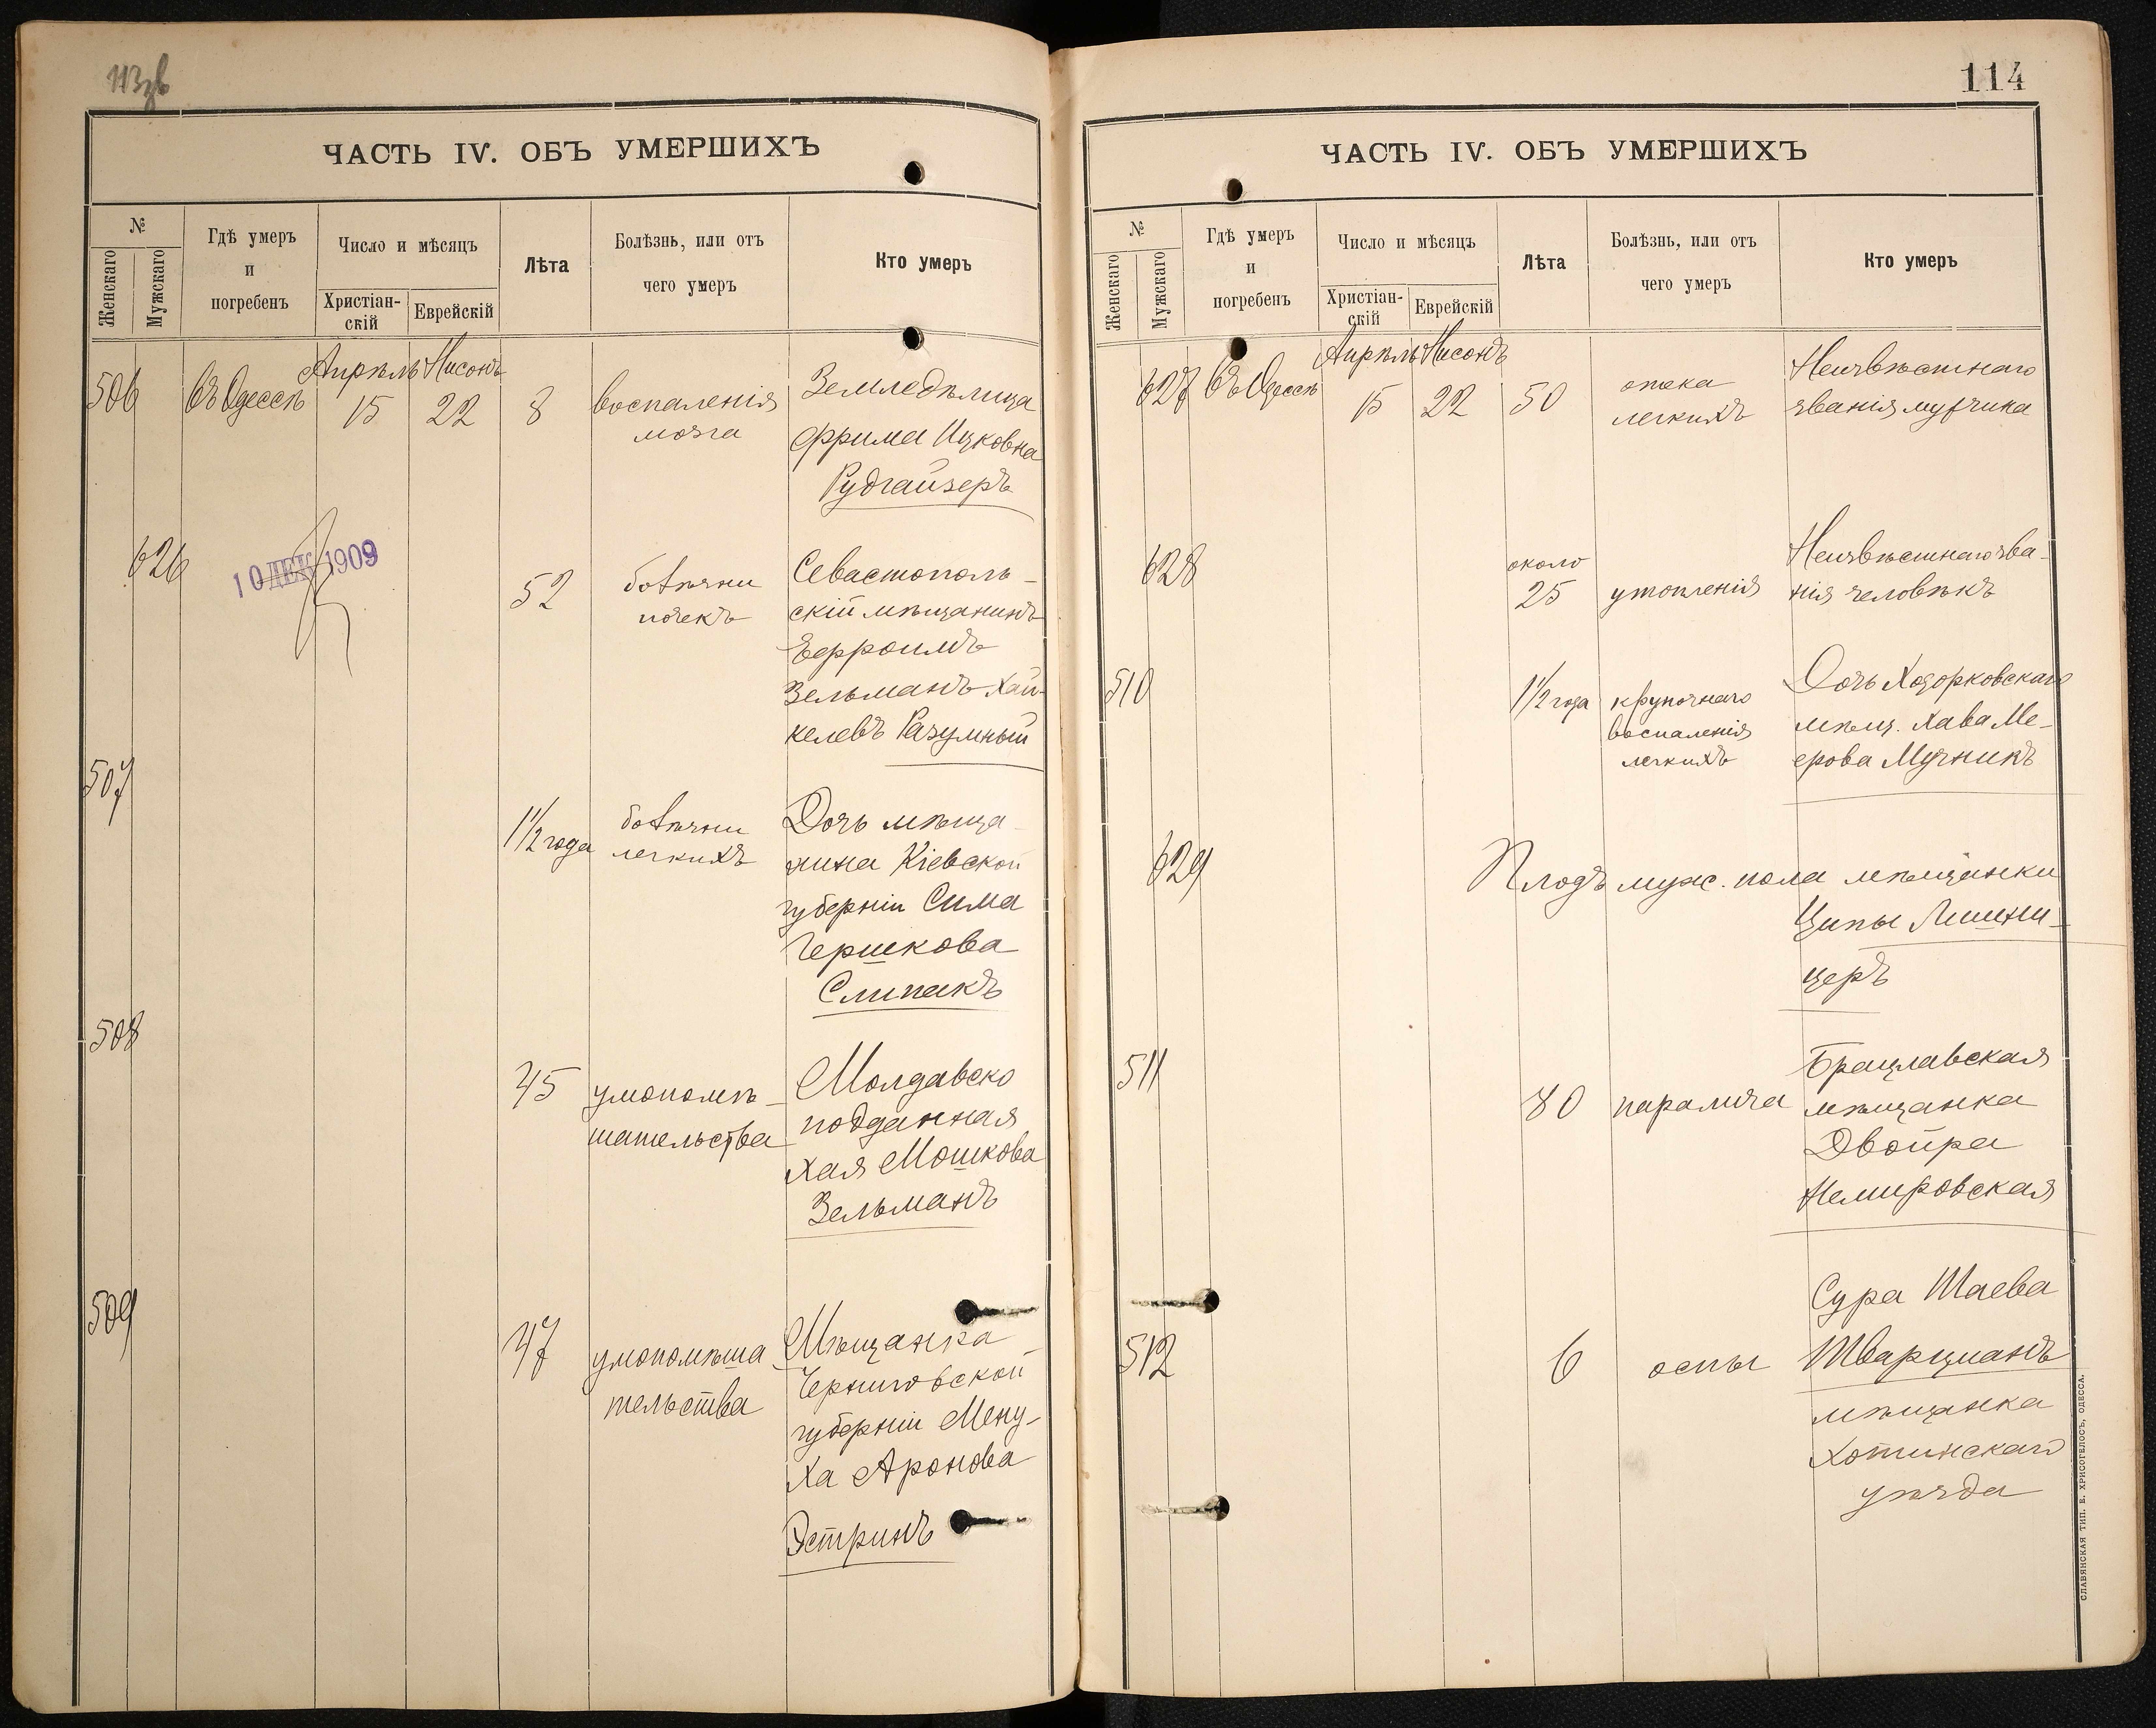 113зв
ЧАСТЬ IV. ОБЪ УМЕРШИХЪ
№
Женскаго
Мужскаго
Гдѣ умеръ
и
погребенъ
Число и мѣсяцъ
Христіан-
скій
Еврейскій
Лѣта
Болѣзнь, или отъ
чего умеръ
Кто умеръ
Апрѣль Нисонъ
506 Въ Одессѣ 15 22 8
воспаленія
мозга
Земледѣлица
Фрима Ицковна
Рудгайзеръ
626
10 ДЕК 1909
52
болѣзни
почекъ
Севастополь-
скій мѣщанинъ
Ефроимъ
Зельманъ Хай-
келевъ Разумный
507
1 1/2 года
болѣзни
легкихъ
Дочь мѣща-
нина Кіевской
губерніи Сима
Гершкова
Слипакъ
508
45
умопомѣ-
шательства
Молдавско
подданная
Хая Мошкова
Зельманъ
509
47
умопомѣша-
тельства
Мѣщанка
Черниговской
губерніи Мену-
ха Аронова
Эстринъ
114
ЧАСТЬ IV. ОБЪ УМЕРШИХЪ
№
Женскаго
Мужскаго
Гдѣ умеръ
и
погребенъ
Число и мѣсяцъ
Христіан-
скій
Еврейскій
Лѣта
Болѣзнь, или отъ
чего умеръ
Кто умеръ
Апрѣль Нисонъ
627 Въ Одессѣ 15 22 50
отека
легкихъ
Неизвѣстнаго
званія мужчина
628
около
25
утопленія
Неизвѣстнаго зва-
нія человѣкъ
510
1 1/2 года
крупознаго
воспаленія
легкихъ
Дочь Ходорковскаго
мѣщ. Хава Ме-
ерова Мучникъ
629
Плодъ муж. пола мѣщанки
Ципы Лишни-
церъ
511
80
паралича
Брацлавская
мѣщанка
Двойра
Немировская
512
6
оспы
Сура Шаева
Шварцманъ
мѣщанка
Хотинскаго
уѣзда
СЛАВЯНСКАЯ ТИП. Е. ХРИСОГЕЛОСЪ, ОДЕССА.